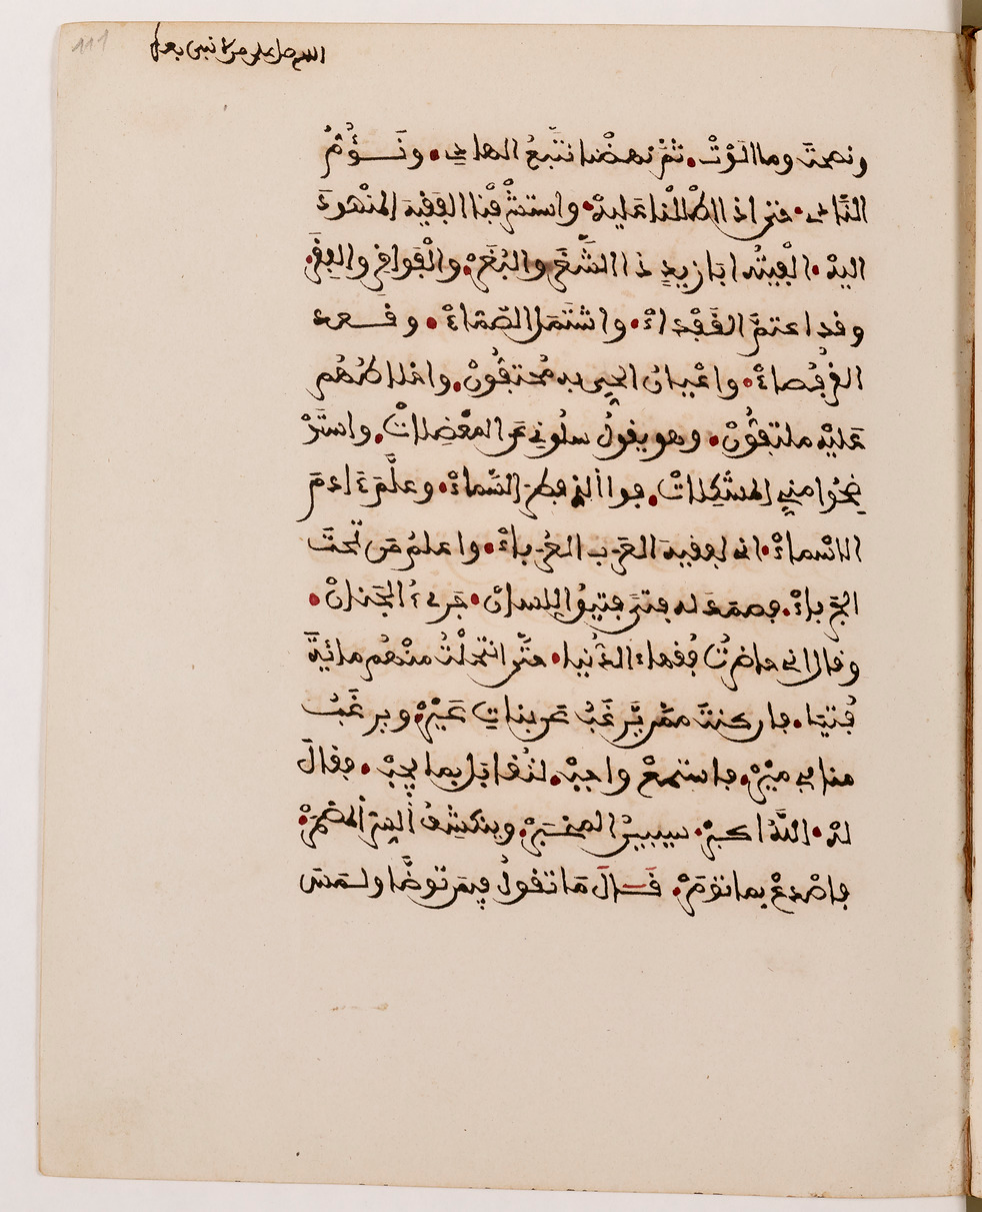 اللهم صل على من لا نبي بعده
ونصحتَ وما الوْتْ. ثمّ نهضْنا نتّبعُ الهادي. ونَـؤُمُّ
النّادي. حتى اذا اطْلَلْنا عَليهْ. واستشْرفْنا الفقيهَ المنْهودَ
اليهْ. الْفيتُه ابا زيدٍ ذا الشّقَرِ والبُقَرْ. والْفَواقِرِ والفِقَرْ.
وقد اعتمَّ القَفْداءْ. واشتَمَل الصّمّاءْ. وقـعد
القُرفُصاءْ. واعْيانُ الحيِ به مُحتفُونْ. واخلاطُهُم
عَليْه ملتفُّونْ. وهو يقولُ سلُوني عنِ المعْضِلاتْ. واستَوْ
ضِحُوا مني المشْكِلاتْ. فوالذي فطر السّماءْ. وعلَّمَ ءادمَ
الاسْماءْ. اني لفقيهُ العَرَب العرْباءْ. واعلمُ مَن تحتَ
الجَرباءْ. فصمَدَ له فتىً فتيقُ اللسانْ. جَريءُ الجَنانْ.
وقال اني حاضرْتُ فُقهاء الدُّنيا. حتّى انتخلْتُ منهُم مائيةَ
فُتيا. فان كنتَ ممّن يّرغَبُ عن بناتِ غَيْرْ. ويرغَبُ
منا في ميْرْ. فاستمعْ واجبْ. لتُقابَل بما يجبْ. فقالَ
لهْ. اللّهُ اكبرْ. سيبينُ المخبَرْ. وينكشِفُ المضمَرْ.
فاصْدعْ بما تؤمَرْ. قـال ما تقولُ فيمن توضّا ولـمسَ